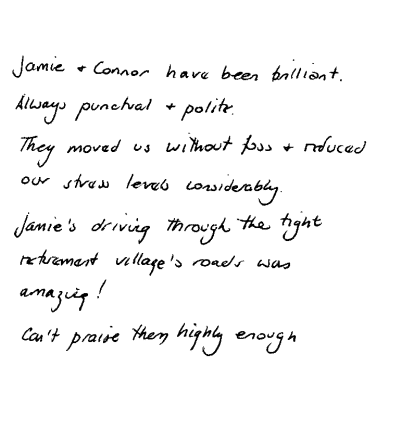 Jamie + Connor have been brilliant.
Always punctual + polite.
They moved us without foss + reduced
our stress levels considerably.
Jamie's driving through the tight
retirement village's roads was
amazing!
Can't praise them highly enough